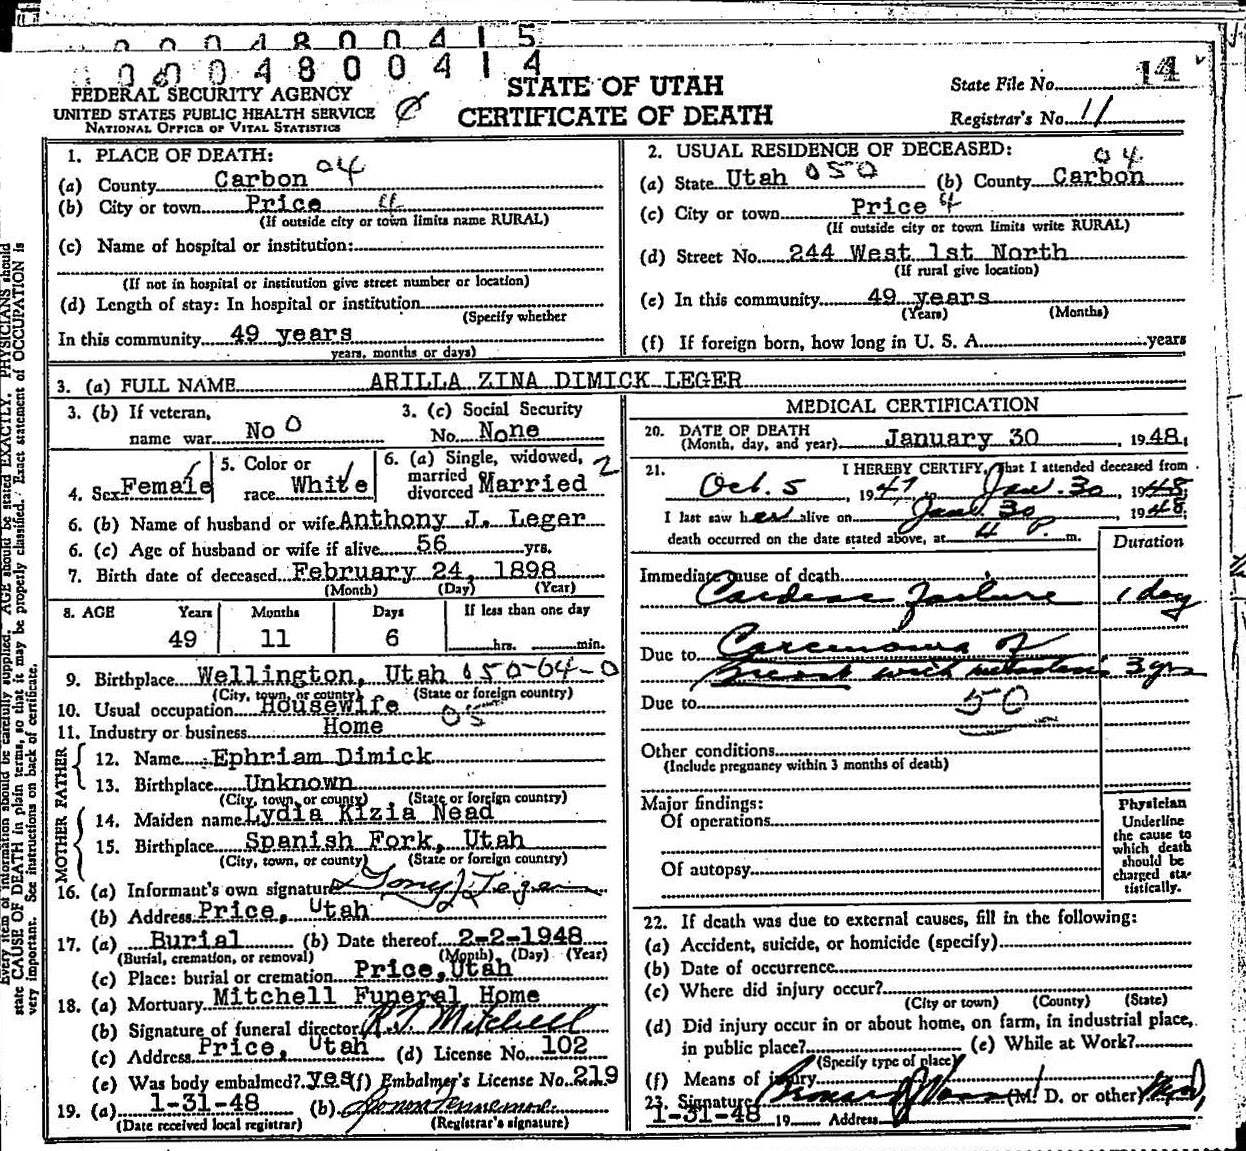 0 0 0 4 8 0 0 4 1 5
0 0 0 4 8 0 0 4 1 4
FEDERAL SECURITY AGENCY
UNITED STATES PUBLIC HEALTH SERVICE
NATIONAL OFFICE OF VITAL STATISTICS
STATE OF UTAH
CERTIFICATE OF DEATH
State File No. 14
Registrar's No. 11
1. PLACE OF DEATH:
(a) County Carbon 04
(b) City or town Price 4
(If outside city or town limits name RURAL)
(c) Name of hospital or institution:
(If not in hospital or institution give street number or location)
(d) Length of stay: In hospital or institution
(Specify whether
In this community 49 years
years, months or days)
2. USUAL RESIDENCE OF DECEASED:
(a) State Utah 050 (b) County Carbon 04
(c) City or town Price 4
(If outside city or town limits write RURAL)
(d) Street No. 244 West 1st North
(If rural give location)
(e) In this community 49 years
(Years) (Months)
(f) If foreign born, how long in U. S. A. years
3. (a) FULL NAME ARILLA ZINA DIMICK LEGER
3. (b) If veteran, name war No 0
3. (c) Social Security No. None
4. Sex Female
5. Color or race White
6. (a) Single, widowed, married divorced Married 2
6. (b) Name of husband or wife Anthony J. Leger
6. (c) Age of husband or wife if alive 56 yrs.
7. Birth date of deceased February 24, 1898
(Month) (Day) (Year)
8. AGE Years Months Days If less than one day
49 11 6 hrs. min.
9. Birthplace Wellington, Utah 050-64-0
(City, town, or county) (State or foreign country)
10. Usual occupation Housewife
11. Industry or business Home
FATHER
12. Name Ephriam Dimick
13. Birthplace Unknown
(City, town, or county) (State or foreign country)
MOTHER
14. Maiden name Lydia Kizia Nead
15. Birthplace Spanish Fork, Utah
(City, town, or county) (State or foreign country)
16. (a) Informant's own signature Tony J. Leger
(b) Address Price, Utah
17. (a) Burial (b) Date thereof 2-2-1948
(Burial, cremation, or removal) (Month) (Day) (Year)
(c) Place: burial or cremation Price, Utah
18. (a) Mortuary Mitchell Funeral Home
(b) Signature of funeral director R. T. Mitchell
(c) Address Price, Utah (d) License No. 102
(e) Was body embalmed? yes (f) Embalmer's License No. 219
19. (a) 1-31-48 (b)
(Date received local registrar) (Registrar's signature)
MEDICAL CERTIFICATION
20. DATE OF DEATH
(Month, day, and year) January 30, 1948.
21. I HEREBY CERTIFY, That I attended deceased from
Oct. 5, 1947 to Jan. 30 1948
I last saw her alive on Jan. 30 1948
death occurred on the date stated above, at 4 P. m.
Duration
Immediate cause of death
Cardiac failure 1 day
Due to Carcinoma of
Breast with metastasis 3 yrs
Due to 50
Other conditions
(Include pregnancy within 3 months of death)
Major findings:
Of operations
Of autopsy
Physician
Underline
the cause to
which death
should be
charged sta-
tistically.
22. If death was due to external causes, fill in the following:
(a) Accident, suicide, or homicide (specify)
(b) Date of occurrence
(c) Where did injury occur?
(City or town) (County) (State)
(d) Did injury occur in or about home, on farm, in industrial place,
in public place? (e) While at Work?
(Specify type of place)
(f) Means of injury
23. Signature (M. D. or other) M.D.
1-31-48 19 Address
Every item of information should be carefully supplied. AGE should be stated EXACTLY. PHYSICIANS should
state CAUSE OF DEATH in plain terms, so that it may be properly classified. Exact statement of OCCUPATION is
very important. See instructions on back of certificate.